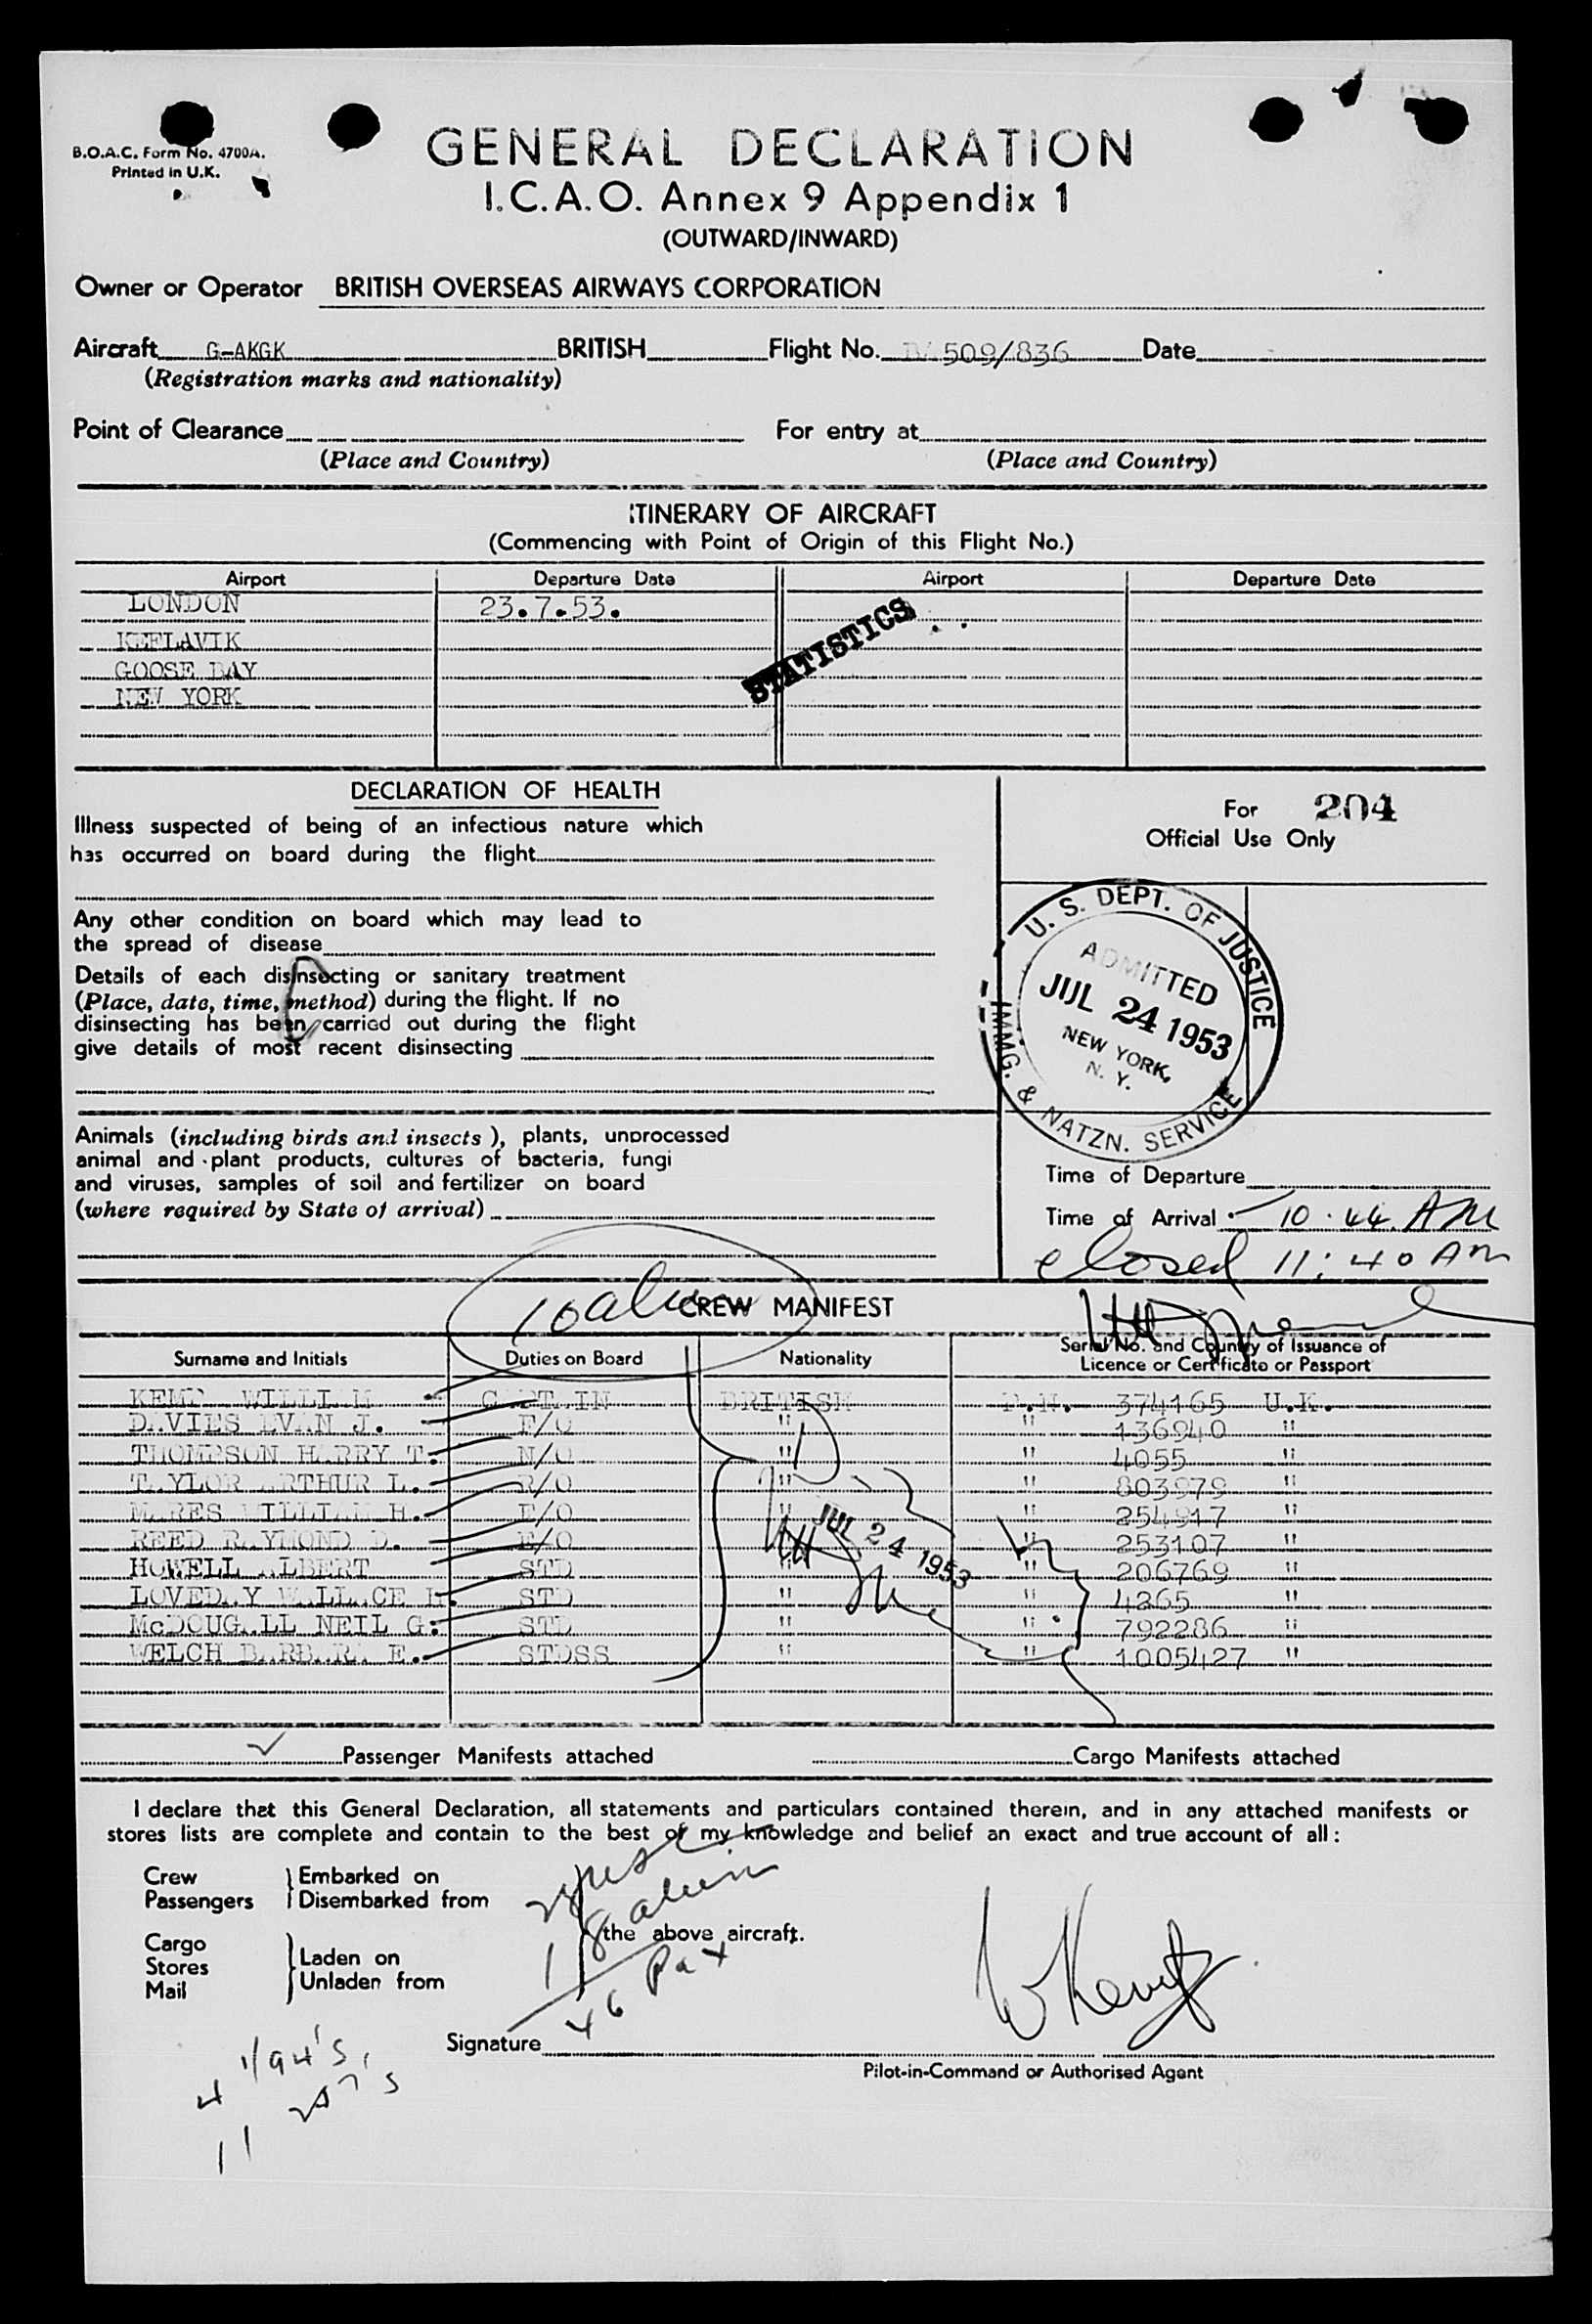 B.O.A.C. Form No. 4700A.
Printed in U.K.
GENERAL DECLARATION
I.C.A.O. Annex 9 Appendix 1
(OUTWARD/INWARD)
Owner or Operator BRITISH OVERSEAS AIRWAYS CORPORATION
Aircraft G-AKGK BRITISH Flight No. BA 509/836 Date
(Registration marks and nationality)
Point of Clearance For entry at
(Place and Country) (Place and Country)
ITINERARY OF AIRCRAFT
(Commencing with Point of Origin of this Flight No.)
Airport Departure Date Airport Departure Date
LONDON 23.7.53.
KEFLAVIK
GOOSE BAY
NEW YORK
STATISTICS
DECLARATION OF HEALTH
Illness suspected of being of an infectious nature which
has occurred on board during the flight
Any other condition on board which may lead to
the spread of disease
Details of each disinsecting or sanitary treatment
(Place, date, time, method) during the flight. If no
disinsecting has been carried out during the flight
give details of most recent disinsecting
Animals (including birds and insects), plants, unprocessed
animal and plant products, cultures of bacteria, fungi
and viruses, samples of soil and fertilizer on board
(where required by State of arrival)
For 204
Official Use Only
U. S. DEPT. OF JUSTICE
ADMITTED
JUL 24 1953
NEW YORK,
N. Y.
IMMG. & NATZN. SERVICE
Time of Departure
Time of Arrival 10.44 AM
closed 11:40 AM
10 alien
CREW MANIFEST
Surname and Initials Duties on Board Nationality Serial No. and Country of Issuance of
Licence or Certificate or Passport
KEMP WILLIAM CAPTAIN BRITISH P.N. 374165 U.K.
DAVIES EVAN J. F/O " " 136940 "
THOMPSON HARRY T. N/O " " 4055 "
TAYLOR ARTHUR L. R/O " " 803979 "
MARES WILLIAM H. E/O " " 254917 "
REED RAYMOND D. E/O " " 253107 "
HOWELL ALBERT STD " " 206769 "
LOVEDAY WALLACE H. STD " " 4265 "
McDOUGALL NEIL G. STD " " 792286 "
WELCH BARBARA E. STDSS " " 1005427 "
JUL 24 1953
Passenger Manifests attached Cargo Manifests attached
I declare that this General Declaration, all statements and particulars contained therein, and in any attached manifests or
stores lists are complete and contain to the best of my knowledge and belief an exact and true account of all:
Crew Embarked on
Passengers Disembarked from
alien
the above aircraft.
Cargo
Stores Laden on
Mail Unladen from
46 Pax
W Kemp
Signature
Pilot-in-Command or Authorised Agent
4
11